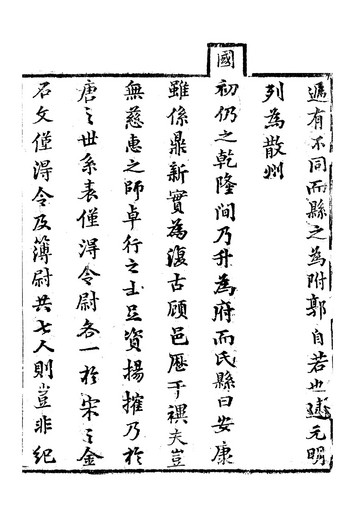 遞有不同而縣之為附郭自若也逮元明
列為散州
國初仍之乾隆間乃升為府而氏縣曰安康
雖係鼎新實為復古顧邑歷于禩夫豈
無慈惠之師卓行之士足資揚搉乃於
唐之世系表僅淂令尉各一於宋之金
石文僅淂令及簿尉共七人則豈非紀